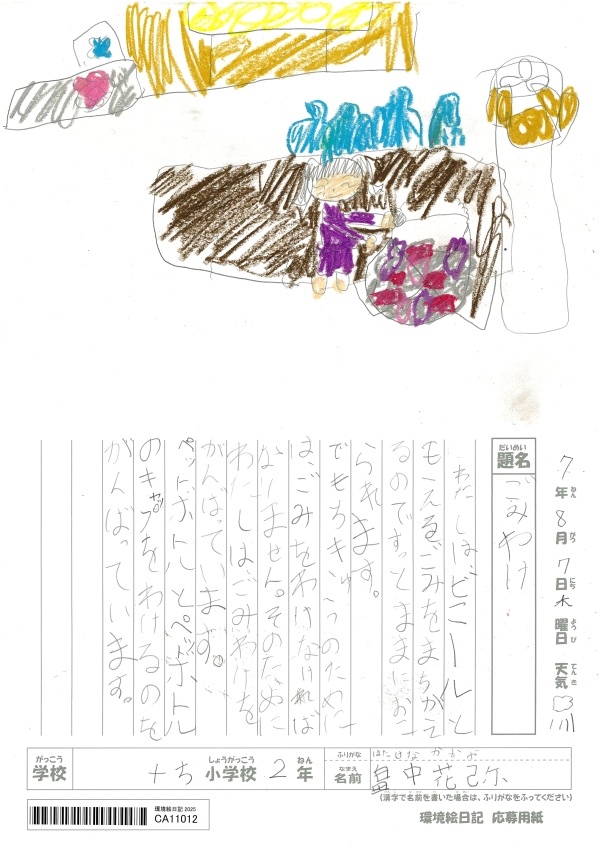 7年8月7日木曜日 天気
ねん がつ にち ようび てんき
だいめい
題名
ごみわけ
わたしは、ビニールと
もえるごみをまちがえ
るのです。とままにおこ
られます。
でもちきゅうのために
は、ごみをわけなければ
なりません。そのために
わたしは、ごみわけを
がんばっています。
ペットボトルとペットボトル
のキャップをわけるのを
がんばっています。
がっこう しょうがっこう ねん
学校 十ち 小学校 2年
ふりがな はたけなか
なまえ
名前 畠中花弥
(漢字で名前を書いた場合は、ふりがなをふってください)
環境絵日記 応募用紙
環境絵日記 2025
CA11012